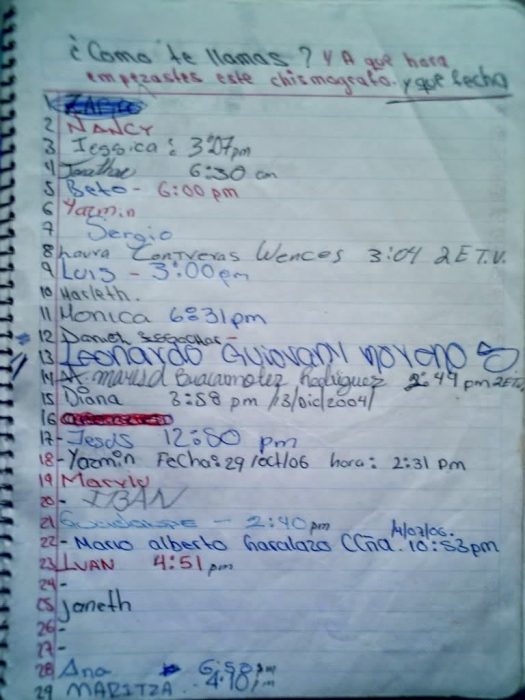 ¿Como te llamas? Y A que hora
empezastes este chismografo. y que fecha
1
2 NANCY
3 Jessica: 3:07pm
4 Jonathan 6:30 am
5 Beto - 6:00 pm
6 Yazmin
7 Sergio
8 Laura Contreras Wences 3:04 2E T.V.
9 Luis - 3:00pm
10 Harleth.
11 Monica 6:31pm
12 Daneh
13 Leonardo Guiovany moreno
14 Rodriguez 2:44 pm
15 Diana 3:58 pm /3/Dic/2004/
16
17- Jesus 12:50 pm
18- Yazmin Fecha: 29/oct/06 hora: 2:31 pm
19 Maryly
20- IBAN
21 - 2:40pm
14/07/06.
22- Mario alberto 10:53pm
23 IVAN 4:51 pm
24-
25 Janeth
26-
27-
28 Ana 6:58 pm
29 MARITZA. 4:18 pm